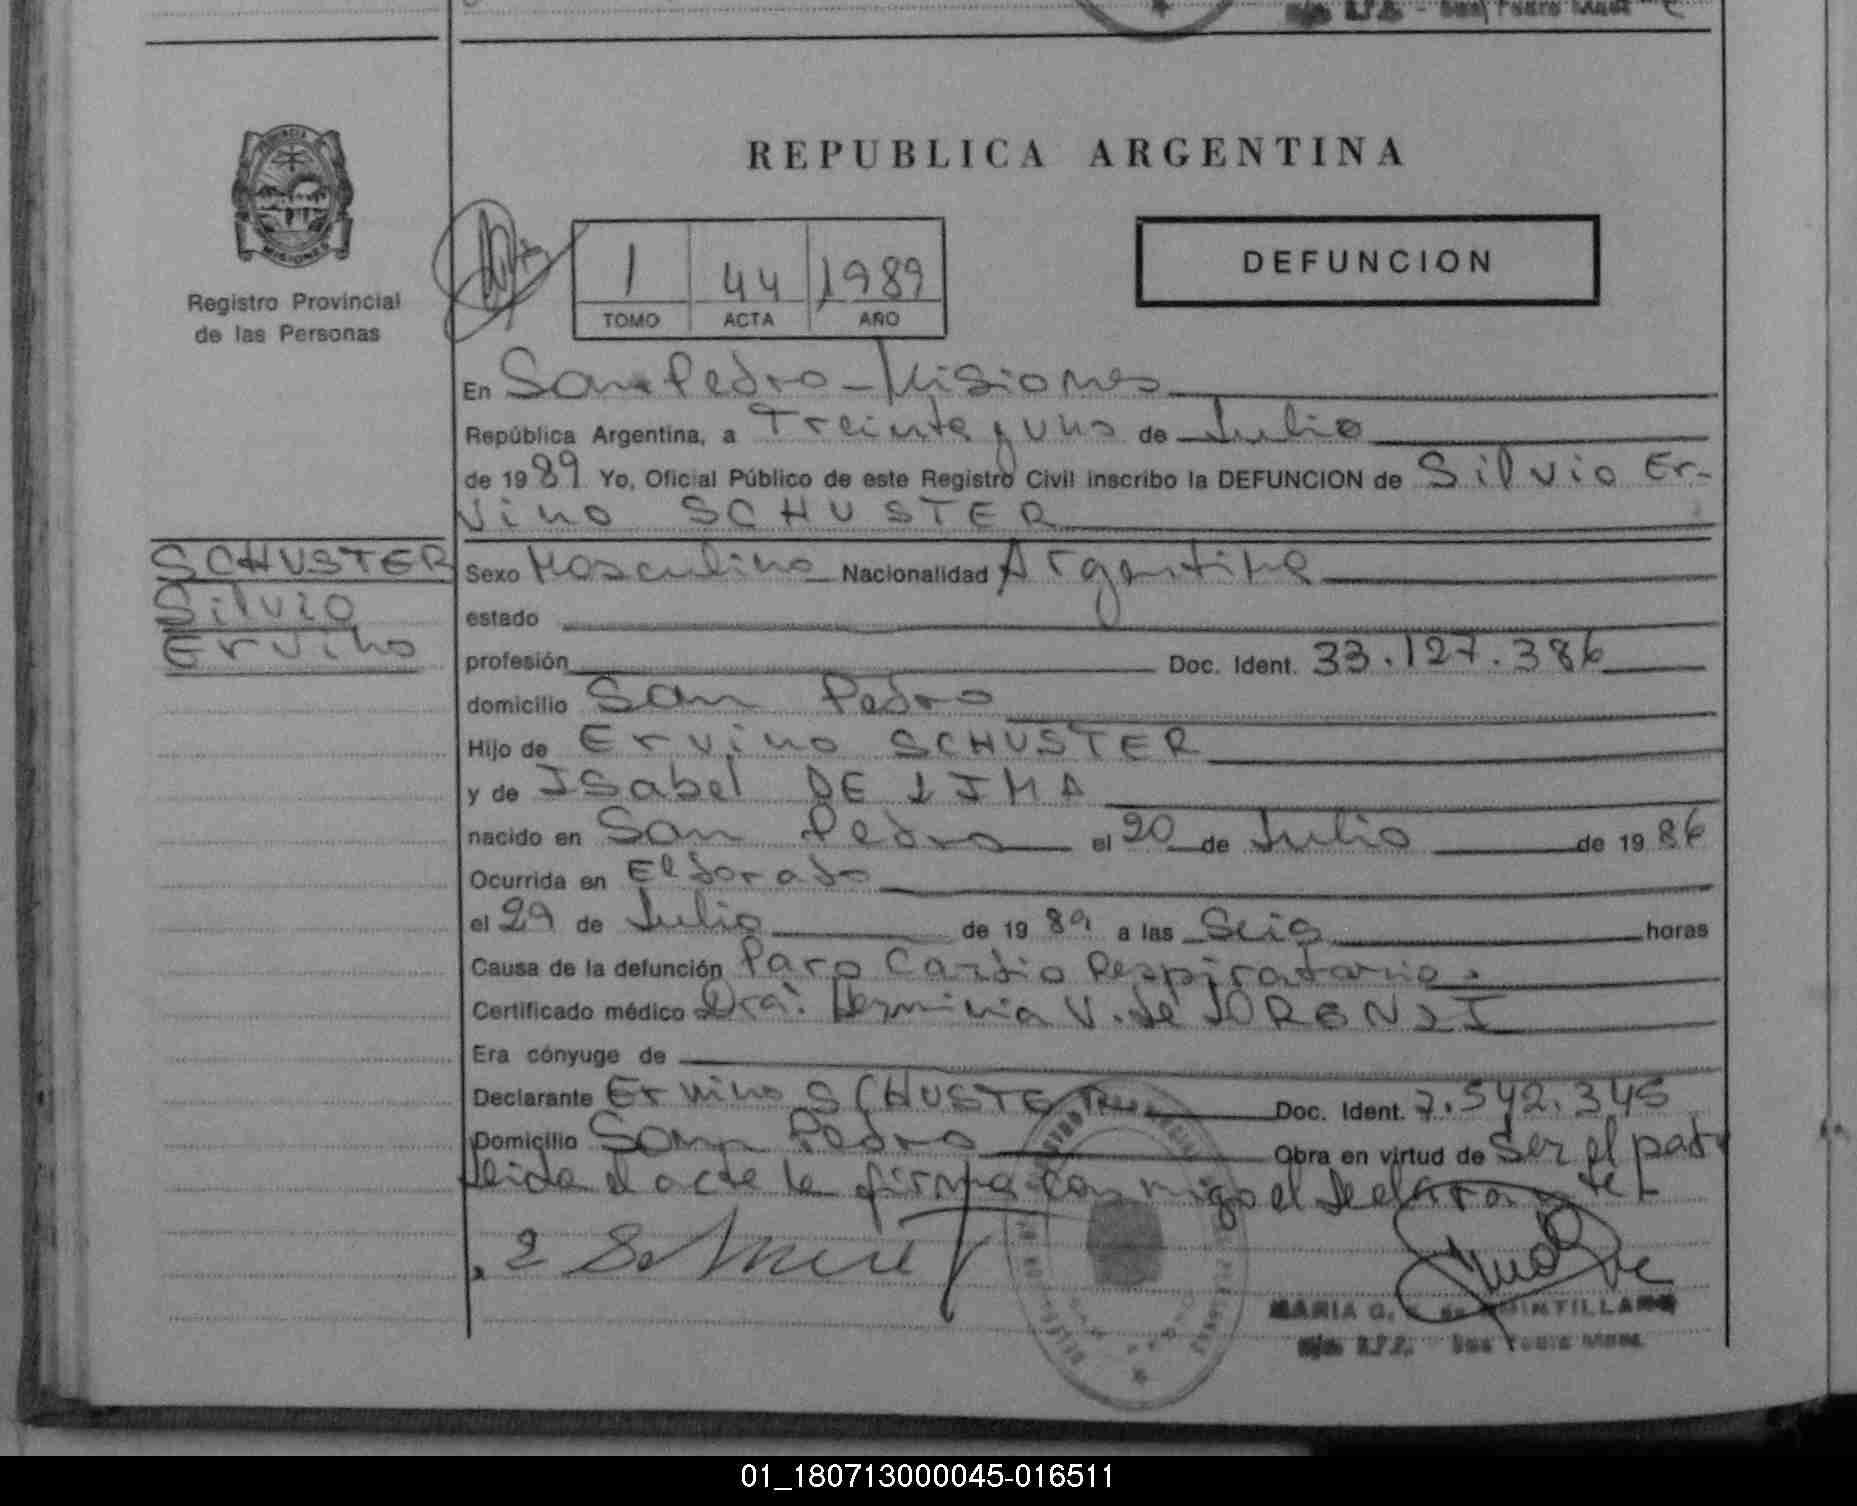 REPUBLICA ARGENTINA
PROVINCIA
MISIONES
Registro Provincial
de las Personas
1 44 1989
TOMO ACTA AÑO
DEFUNCION
En San Pedro - Misiones
República Argentina, a Treinta y uno de Julio
de 1989 Yo, Oficial Público de este Registro Civil inscribo la DEFUNCION de Silvio Er-
vino SCHUSTER
SCHUSTER
Silvio
Ervino
Sexo Masculino Nacionalidad Argentina
estado
profesión Doc. Ident. 33.127.386
domicilio San Pedro
Hijo de Ervino SCHUSTER
y de Isabel DE LIMA
nacido en San Pedro el 20 de Julio de 1986
Ocurrida en Eldorado
el 29 de Julio de 1989 a las Seis horas
Causa de la defunción Paro Cardio Respiratorio.
Certificado médico Dra. Herminia V. de
Era cónyuge de
Declarante Ervino SCHUSTER Doc. Ident. 7.542.345
Domicilio San Pedro Obra en virtud de Ser el padr
Leida el acta la firma conmigo el declarante
MARIA G. de QUINTILLAN
01_180713000045-016511